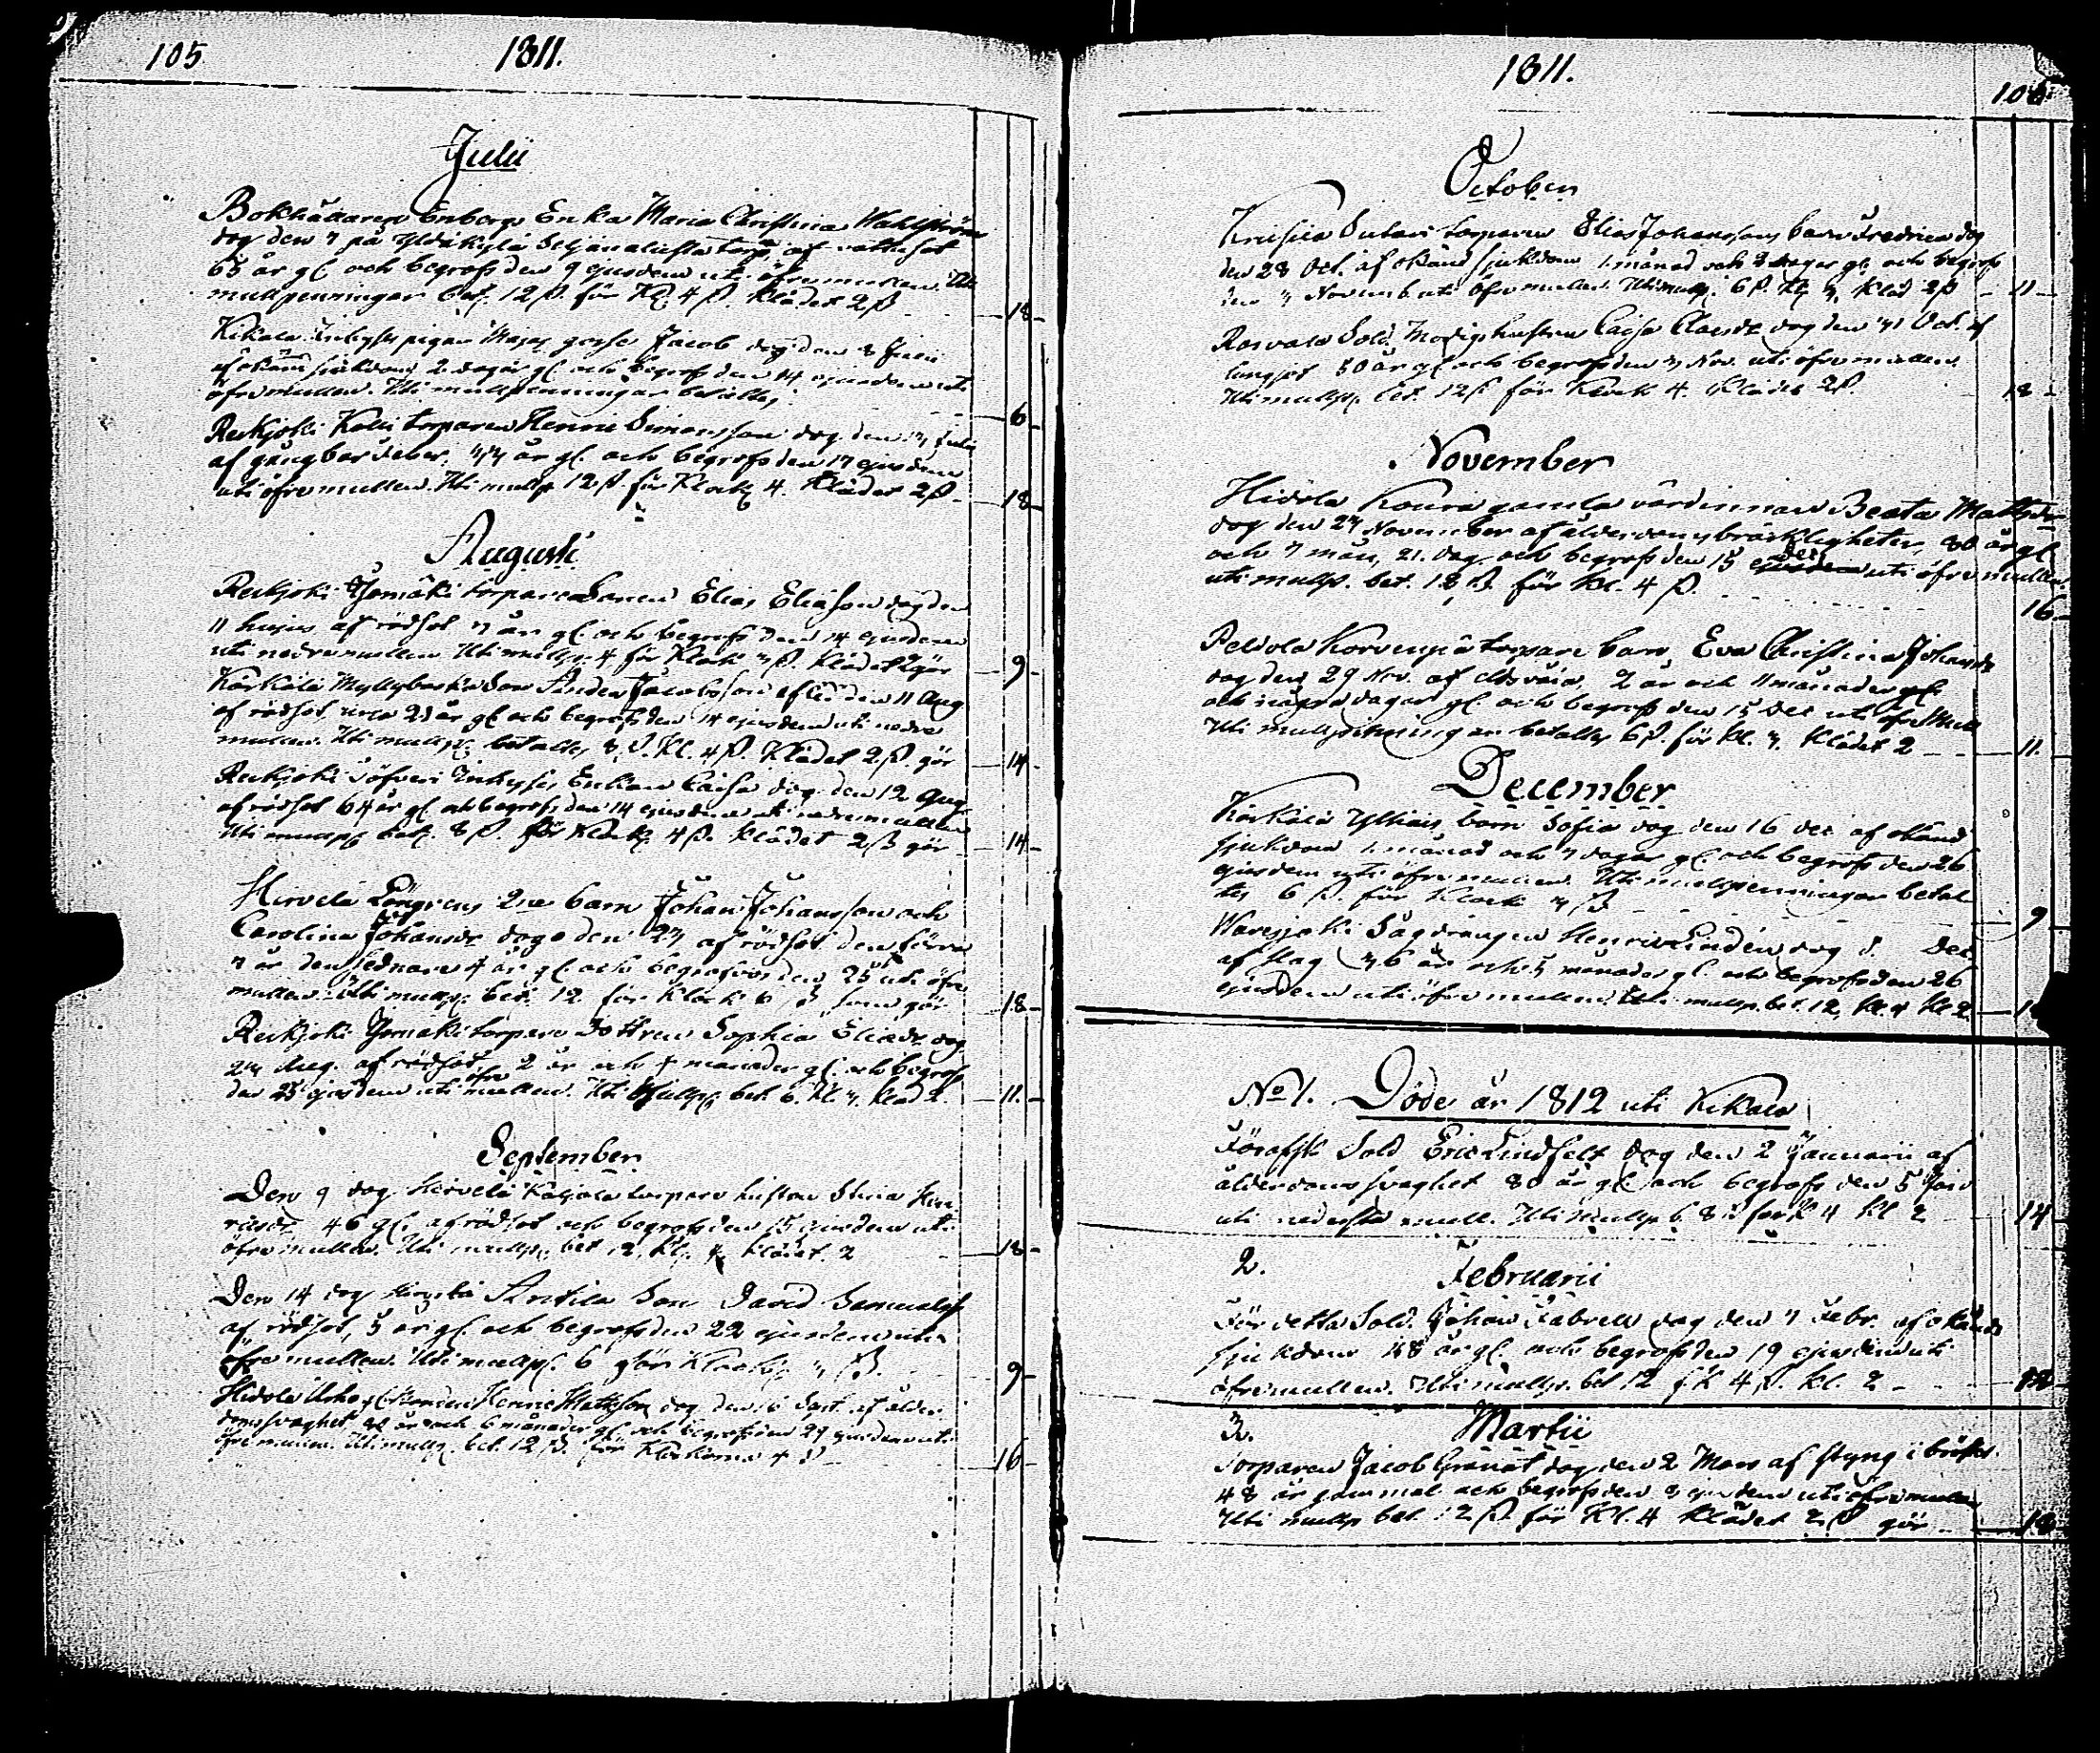 105
1811.
Julii
Bokhållaren Enbergs Enka Maria Christina Wahlström
dog den 7 på af vattusot
65 år gl. och begrofs den 9 ejusdem uti öfre mullen. Uti
mullpenningar bet. 12 ß. för Kl. 4 ß. Klädet 2 ß
18
Kikala Inhyses pigan Majas gosse Jacob dog den 8 Julii
af okänd sjukdom 2 dagar gl. och begrofs den 14 ejusdem uti
öfre mullen. Uti mullpenningar betaltes
6
Reckjoki Kolli torparen Henric Simonsson dog den 14 Julii
af gångbar feber, 77 år gl. och begrofs den 17 ejusdem
uti öfre mullen. Uti mullp 12 ß. för Klock 4. Klädet 2 ß
18
Augusti
Reckjoki torpare Sonen Elias Eliasson dog den
11 hujus af rödsot 7 år gl. och begrofs den 14 ejusdem
uti nedre mullen Uti mullp. 4 för Klock 3 ß. Klädet 2 gör
9
Kärkälä Son Anders Jacobsson afled den 11 Aug
af rödsot 23 år gl. och begrofs den 14 ejusdem uti nedre
mullen. Uti mullp. betaltes 8 ß. Kl. 4 ß. Klädet 2 ß. gör
14
Reckjoki Söfveri Inhyses Enkan Caisa dog den 12 Aug
af rödsot 64 år gl. och begrofs den 14 ejusdem uti nedre mullen
Uti mullp bet. 8 ß. för Klock 4 ß. Klädet 2 ß gör
14
Hirvelä Löngrens 2ne barn Johan Johansson och
Carolina Johansdr dogo den 23 af rödsot den förra
7 år den sednare 4 år gl. och begrofvos den 25 uti öfre
mullen. Uti mullp. bet. 12 för Klock 6 ß som gör
18
Reckjoki torpare Dottren Sophia Eliasdr dog
24 Aug. af rödsot 2 år och 4 månader gl. och begrofs
den 25 ejusdem uti öfre mullen. Uti Mullp bet. 6. Kl. 3. Kläd 2.
11
September
Den 9 dog Hirvelä torpare hustrun Stina Hen
ricsdr 46 gl. af rödsot och begrofs den 15 ejusdem uti
öfre mullen. Uti mullp. bet 12, Kl. 4 Klädet 2
18
Den 14 dog Hirvelä Anttila Son David Samuelss
af rödsot, 5 år gl. och begrofs den 22 ejusdem uti
öfre mullen. Uti mullp. 6 för Klock 3 ß.
9
Henric Mattsson dog den 16 Sept. af ålder
domssvaghet år och 6 månader gl. och begrofs den 29 ejusdem uti
öfre mullen. Uti mullp. bet. 12 ß. för Klockorna 4 ß
16
1811.
106
October
torparen Elias Johanssons barn Fredrica dog
den 28 Oct. af okänd sjukdom 1 månad och 3 dagar gl. och begrofs
den 3 Novemb uti öfre mullen. Uti mullp. 6 ß. Kl 3. Kläd 2 ß
11
Rosvala Sold. Modigs hustrun Caisa Claesdr dog den 31 Oct. af
lungsot 50 år gl. och begrofs den 3 Nov. uti öfre mullen.
Uti mullp. bet. 12 ß för Klock 4. Klädet 2 ß.
18
November
Hidola Koura gamla värdinnan Beata Mattsdr
dog den 27 November af ålderdoms bräckligheter, 80 år gl.
och 7 mån, 21. dag. och begrofs den 15 Dec uti öfre mullen.
uti mullp. bet. 12 ß. för Kl. 4 ß.
16
Peldola Korvenpä torpare barn Eva Christina Johansdr
dog den 29 Nov. af 2 år och 11 månader
och några dagar gl. och begrofs den 15 Dec uti öfre Mull
Uti mullpenningar betaltes 6 ß. för Kl. 3. Klädet 2
11.
December
Kärkälä barn Sofia dog den 16 Dec af okänd
sjukdom 1 månad och 7 dagar gl. och begrofs den 26
ejusdem uti öfre mullen. Uti mullpenningar betal
tes 6 ß. för Klock 3 ß
9
Waresjoki Sågdrängen Henric Lindén dog d. Dec
af slag 36 år och 5 månader gl. och begrofs den 26
ejusdem uti öfre mullen. Uti mullp. bet. 12, Kl. 4 Kl. 2
No 1. Döde år 1812 uti Kikala
Förafsk Sold Eric Lindfelt dog den 2 Januarii af
ålderdoms svaghet 80 år gl. och begrofs den 5 Jan
uti nedersta mull. Uti Mullp b. 8 ß för K 4 Kl 2
14
2. Februarii
För detta Sold. Johan Fabrell dog den 7 Febr. af okänd
sjukdom år gl. och begrofs den 19 ejusdem uti
öfre mullen. Uti mullp. bet 12 f. K 4 ß. Kl. 2
18
3. Martii
Torparen Jacob Granat dog den 2 Mars af styng i bröstet
48 år gammal och begrofs den 8 ejusdem uti öfre mullen
Uti mullp bet. 12 ß. för Kl. 4 Klädet 2 ß gör
18